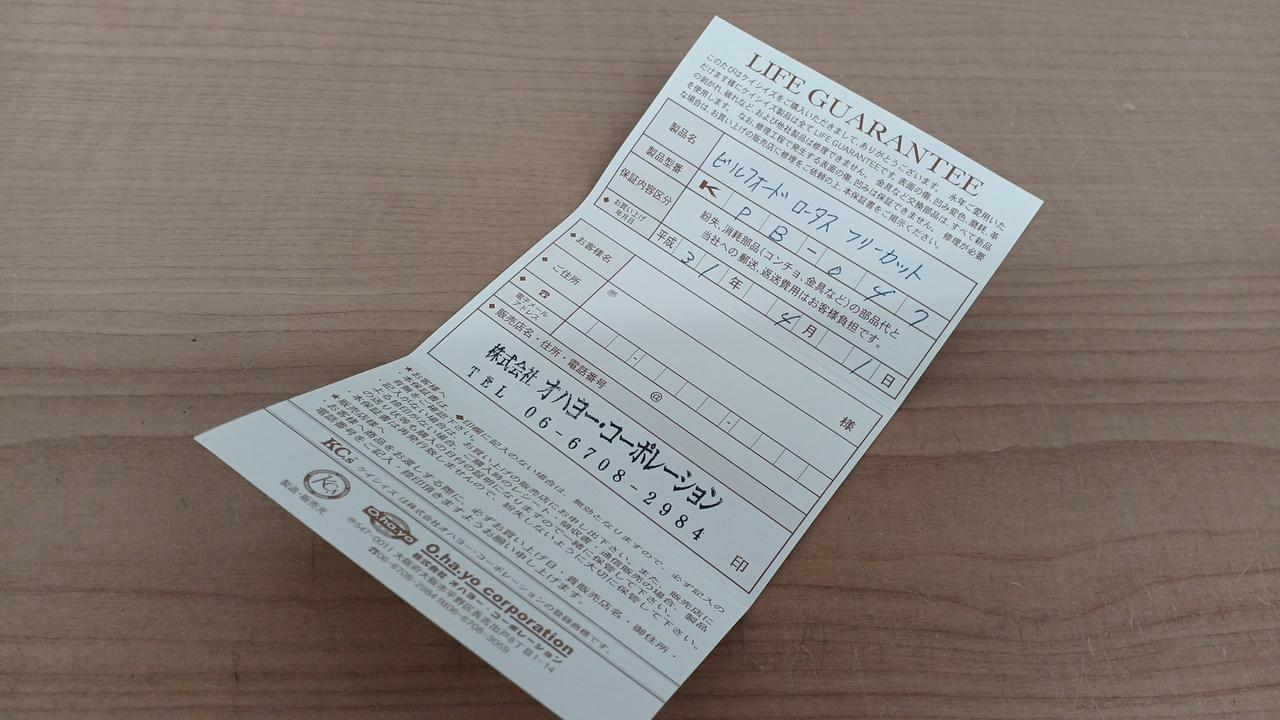 LIFE GUARANTEE
このたびはケイシイズをご購入いただきまして、ありがとうございます。 永年ご愛用いた
だけます様にケイシイズ製品は全て LIFE GUARANTEEです。表面の傷、凹み変色、磨耗、革
の割がれ、破れなど、および他社製品は修理できません。 金具など交換部品は、すべて新品
を使用します。 なお、修理工程で発生する表面の傷、凹みは保証できません。 修理が必要
な場合は、お買い上げの販売店に修理をご依頼の上、本保証書をご掲示ください。
製品名 ビルフォード ロータス フリーカット
製品型番 K P B - 0 4 7
保証内容区分 紛失、消耗部品(コンチョ、金具など)の部品代と
当社への郵送、返送費用はお客様負担です。
◆お買い上げ年月日 平成 31年 4月 1日
◆お客様名 様
◆ご住所 〒
◆☎ - -
◆電子メールアドレス @
◆販売店名・住所・電話番号
株式会社 オハヨー・コーポレーション
TEL 06-6708-2984
印
★お客様へ
◆印欄に記入のない場合は、無効となりますので、必ず記入の
有無をご確認下さい。
★販売店様へ
お客様へ商品をお渡しする際に、必ずお買い上げ日・貴販売店名・御住所・
電話番号をご記入・御印頂きますようお願い申し上げます。
KCs ケイシイズ は株式会社オハヨー・コーポレーションの登録商標です。
製造・販売元
O.ha.yo
O.ha.yo corporation
株式会社 オハヨー・コーポレーション
〒547-0011 大阪府大阪市平野区長吉出戸8丁目1-14
☎06-6708-2984 FAX06-6708-3059